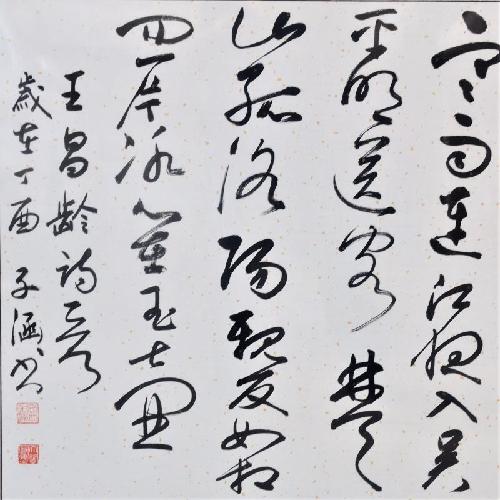 寒雨連江夜入吳
平明送客楚
山孤洛陽親友如相
問一片冰心在玉壺
王昌齡詩一首
歲在丁酉 子涵書